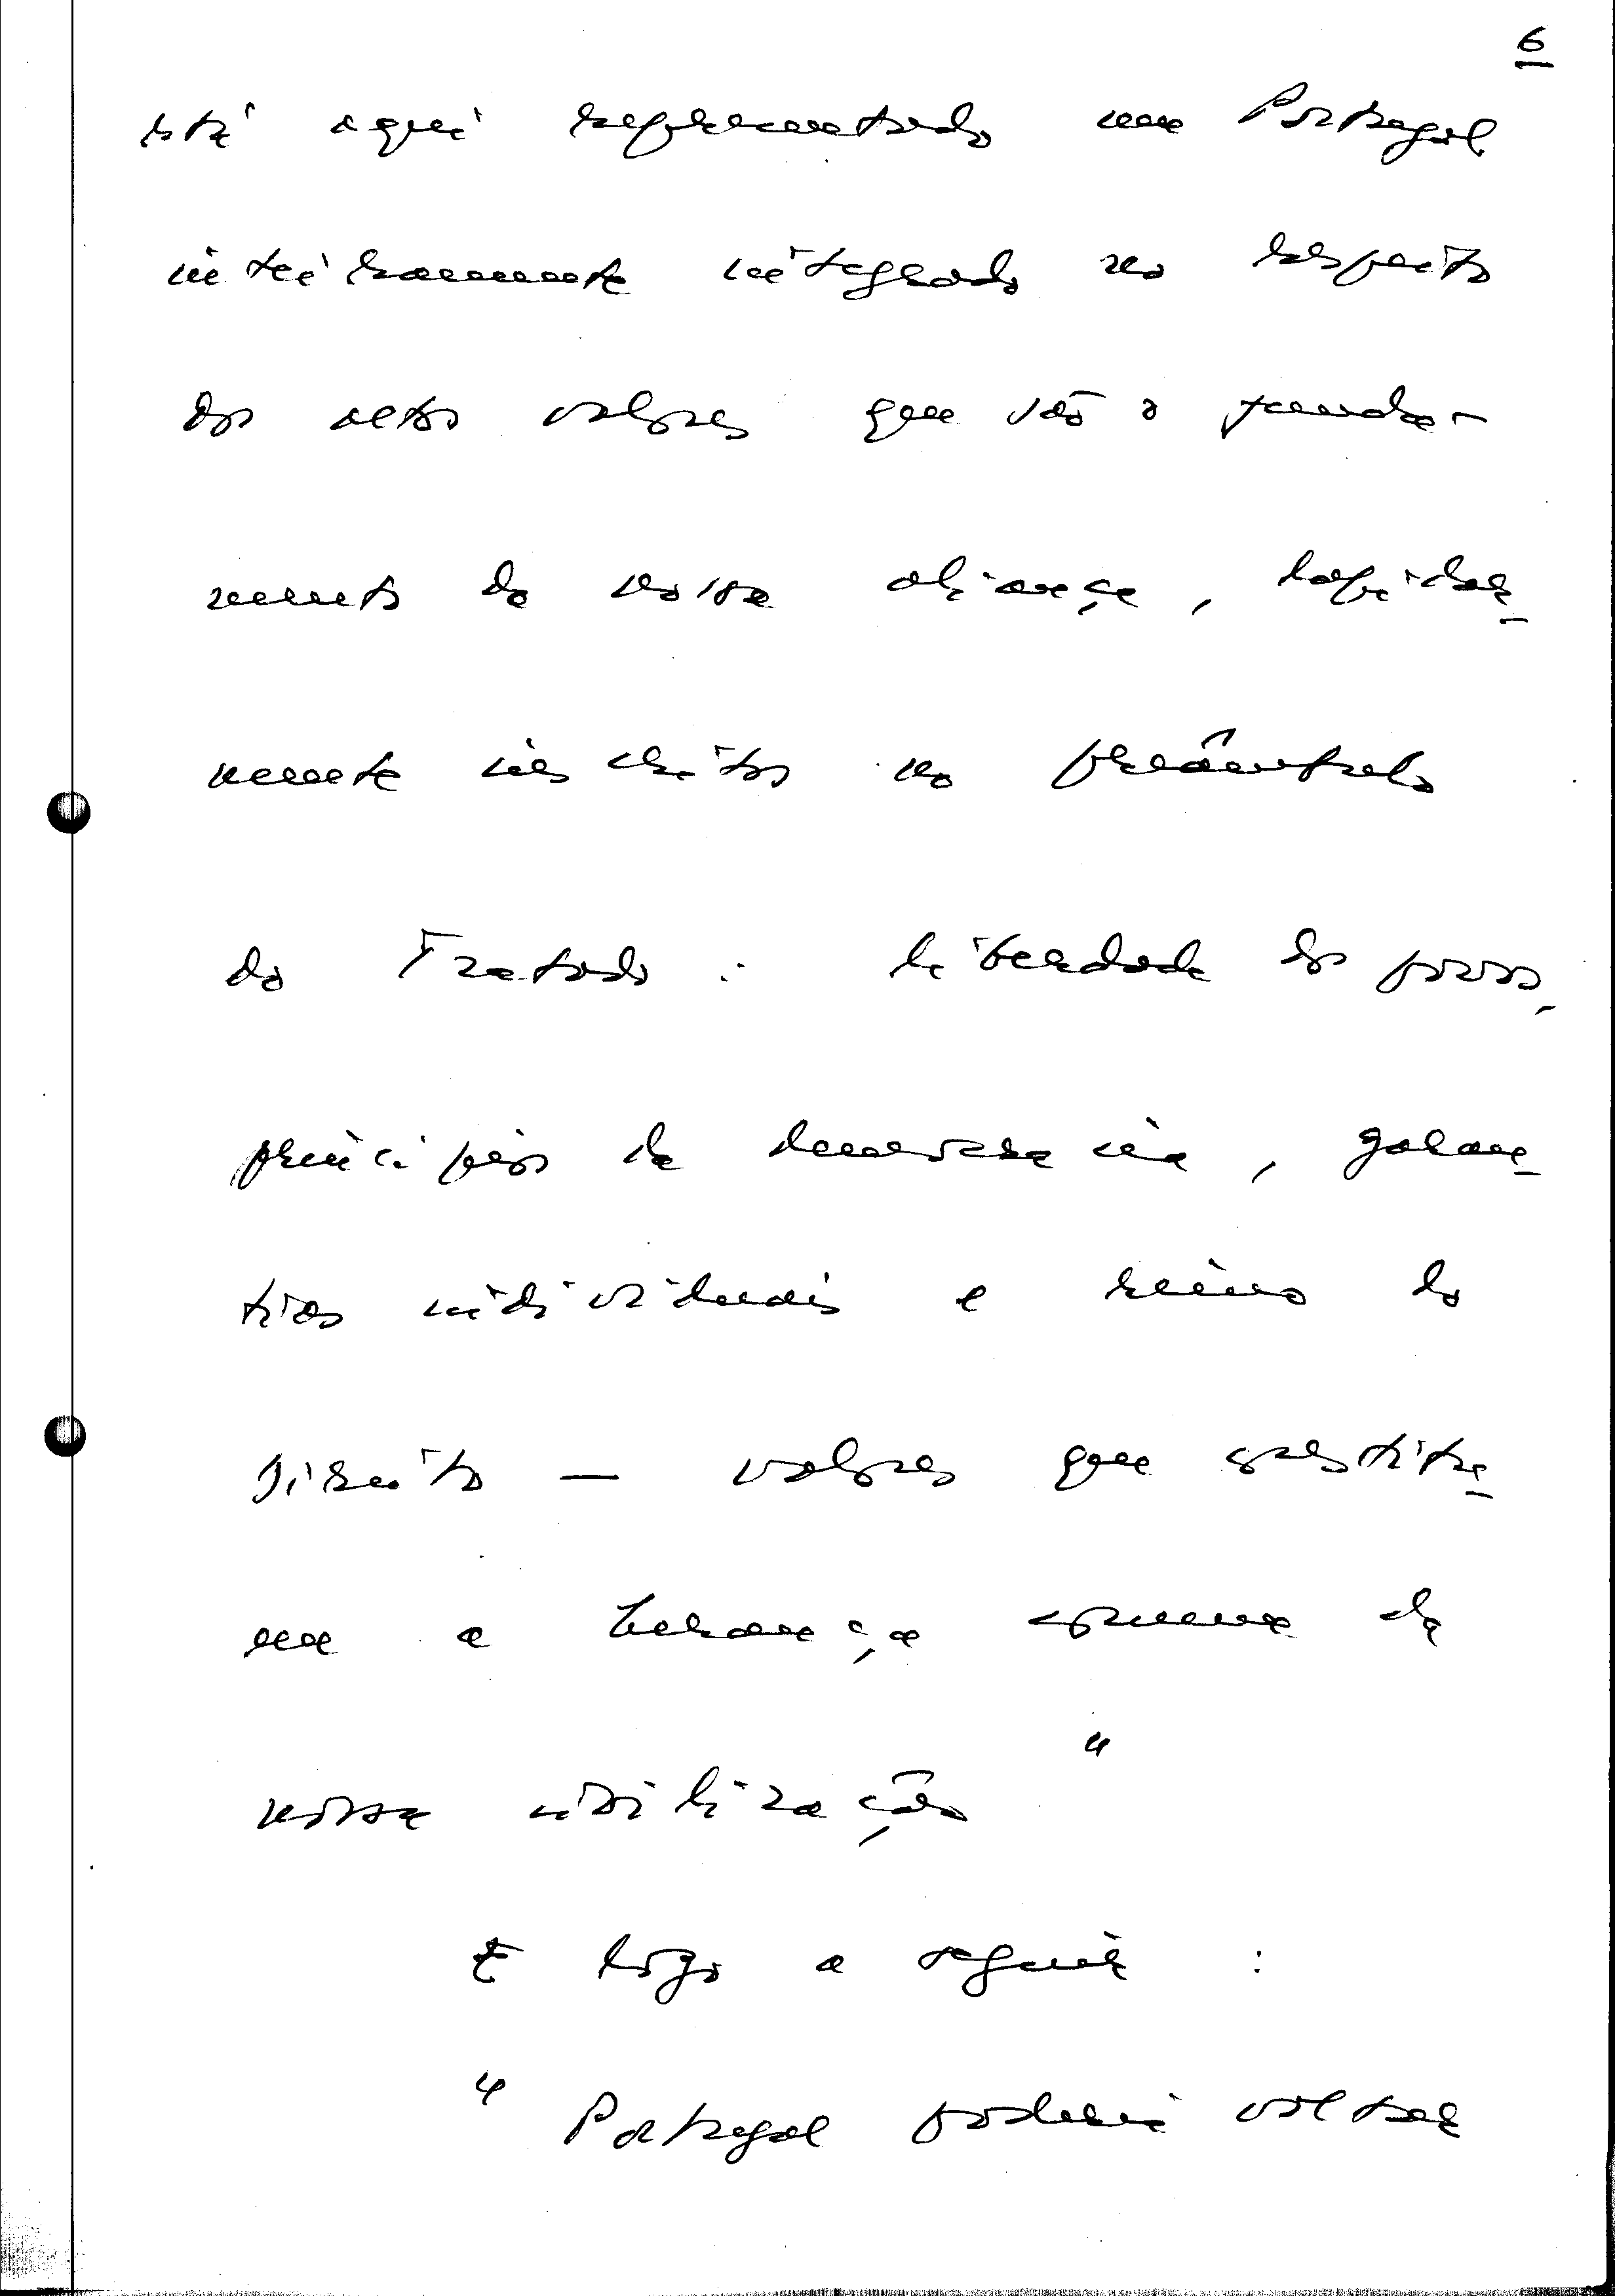 6
está aqui representado um Portugal
inteiramente integrado no respeito
dos altos valores que são o funda-
mento da nossa aliança, lapidar-
mente inscritos no preâmbulo
do Tratado: liberdade dos povos,
princípios da democracia, garan-
tias individuais e reino do
Direito — valores que constitu-
em a herança comum da
nossa civilização"
E logo a seguir:
" Portugal poderá voltar